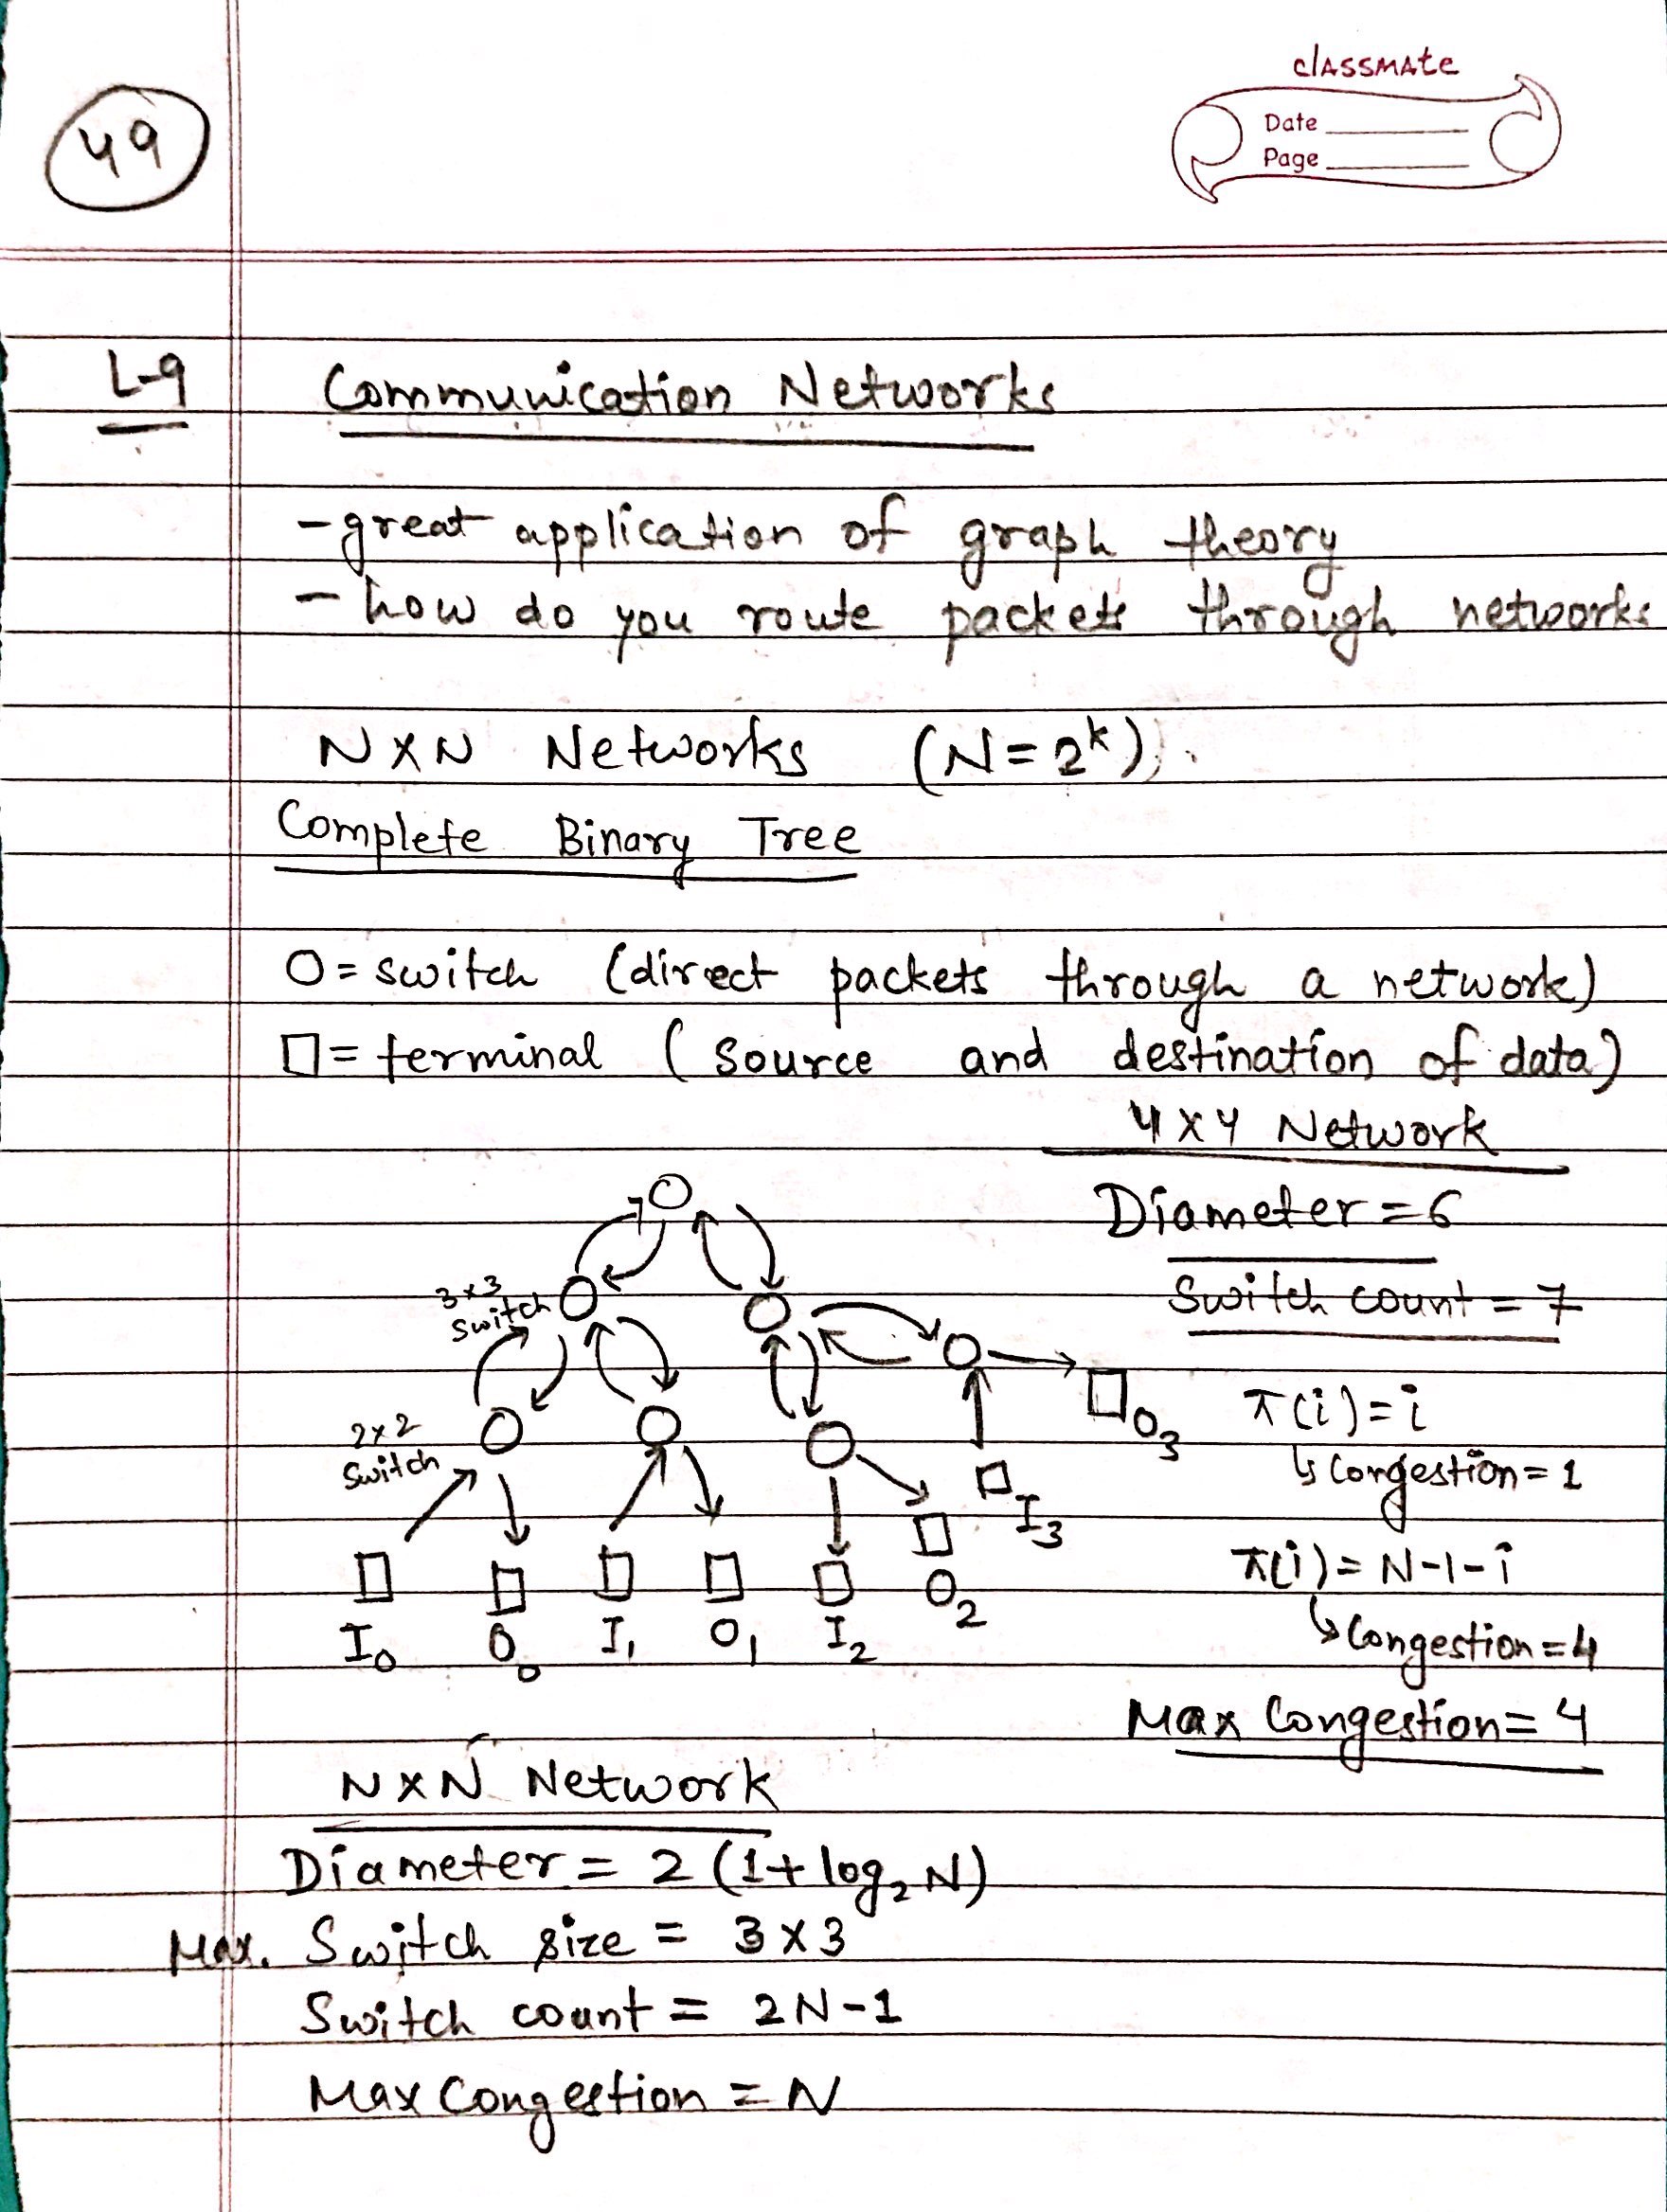 classmate
Date
Page
49
L-9 Communication Networks
- great application of graph theory
- how do you route packets through networks
N×N Networks (N=2^k)
Complete Binary Tree
O = switch (direct packets through a network)
□ = terminal (source and destination of data)
4×4 Network
Diameter = 6
Switch count = 7
3×3 switch
2×2 Switch
π(i) = i
↳ Congestion = 1
π(i) = N-1-i
↳ Congestion = 4
Max Congestion = 4
O₃
I₃
I₀ O₀ I₁ O₁ I₂ O₂
N×N Network
Diameter = 2 (1+log₂N)
Max. Switch size = 3×3
Switch count = 2N-1
Max Congestion = N